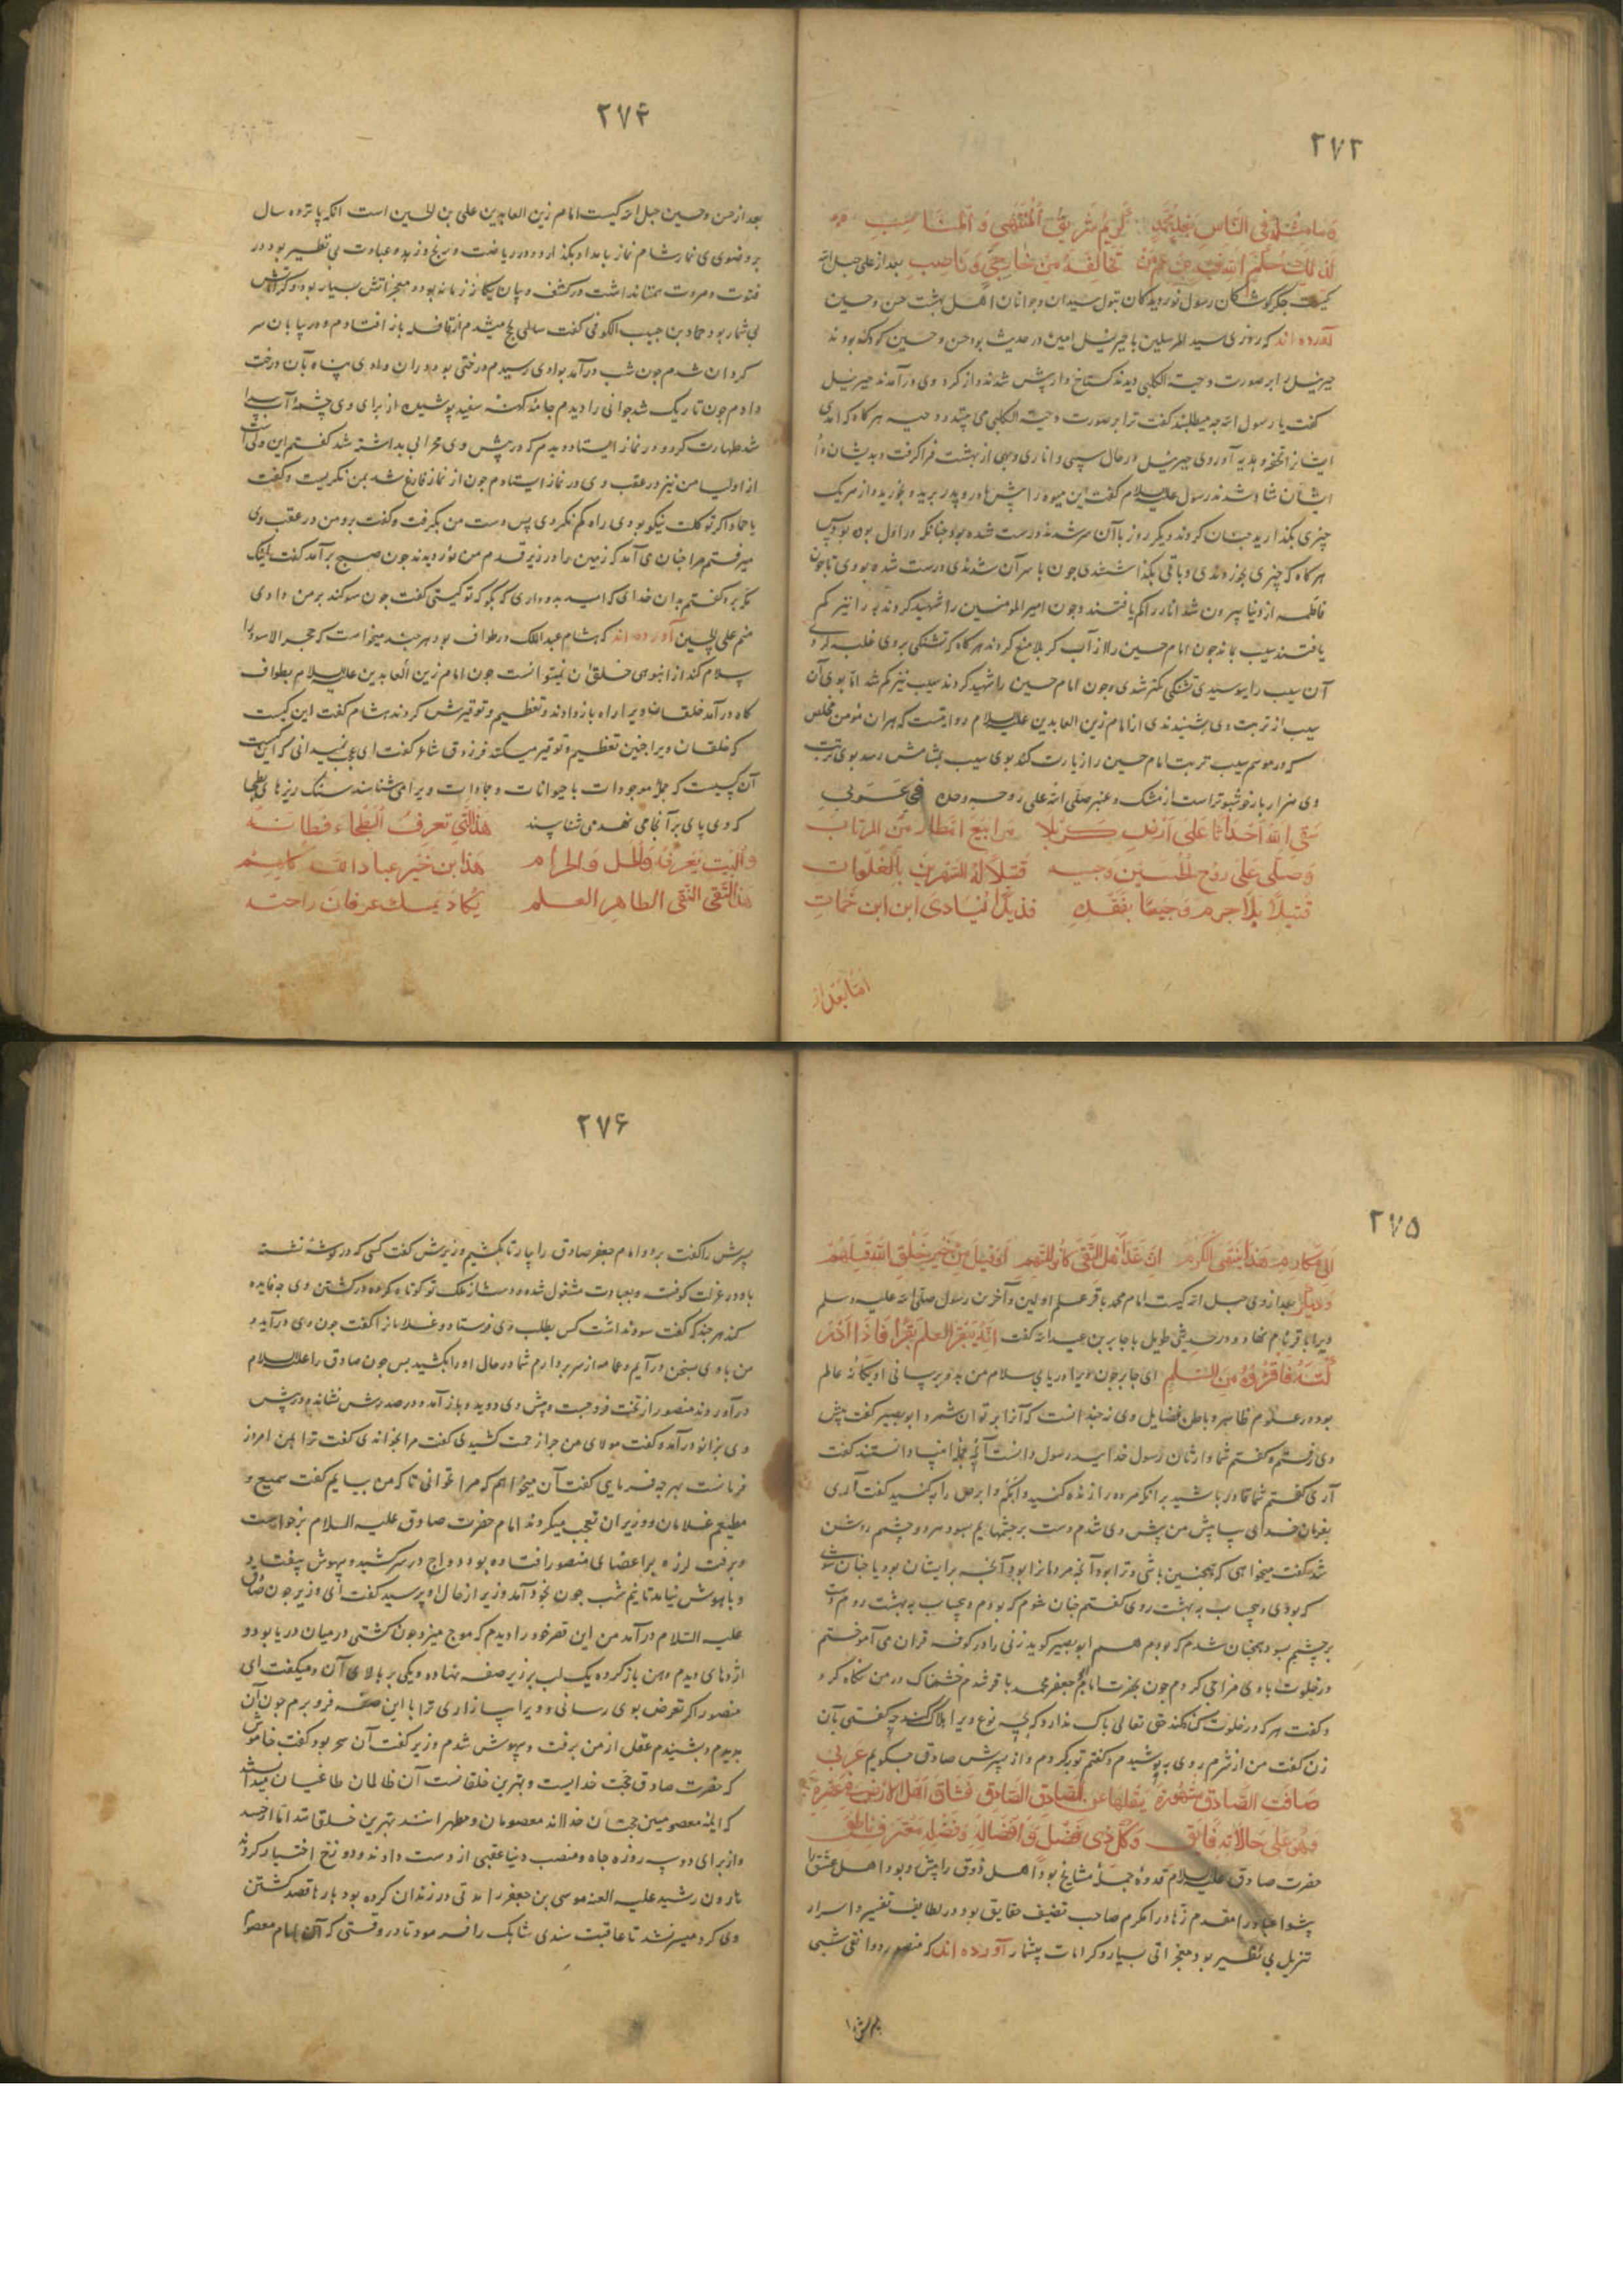 ٢٧٣
کیست جگر گوشگان رسول نور دیدگان بتول سیدان و جوانان اهل بهشت حسن و حسین
آورده اند که روزی سید المرسلین با جبرئیل امین در حدیث بود حسن و حسین کودک بودند
جبرئیل را بر صورت دحیة الکلبی دیدند گستاخ وار پیش شدند و از گرد وی درآمدند جبرئیل
گفت یا رسول الله چه میطلبند گفت ترا بر صورت دحیة الکلبی می پندارند دحیه هر گاه که آمدی
ایشانرا تحفه و هدیه آوردی جبرئیل در حال سیبی و اناری و بهی از بهشت فرا گرفت و بدیشان داد
ایشان شاد شدند رسول علیه السلام گفت این میوه را پیش مادر و پدر برید و بخورید و از هر یک
چیزی بگذارید چنان کردند دیگر روز با آن سر شدند درست شده بود چنانکه در اول بود
هر گاه که چیزی بخوردندی و باقی بگذاشتندی چون با سر آن شدندی درست شده بودی تا چون
فاطمه از دنیا بیرون شد انار را گم یافتند و چون امیر المومنین را شهید کردند به را نیز گم
یافتند سیب بماند چون امام حسین را از آب کربلا منع کردند هر گاه که تشنگی بر وی غلبه کردی
آن سیب را ببوسیدی تشنگی کمتر شدی و چون امام حسین را شهید کردند سیب نیز گم شد اما بوی آن
سیب از تربت وی بشنیدندی از امام زین العابدین علیه السلام روایتست که هر آن مؤمن مخلص
که در موسم سیب تربت امام حسین را زیارت کند بوی سیب بمشامش رسد بوی تربت
وی هزار بار خوشبوتر است از مشک و عنبر صلی الله علی روحه وحده فی عربی
سقی الله اجداثا علی ارض کربلا مرابیع امطار من المزنات
وصلی علی روح الحسین وجسمه قتیلا لدی النهرین بالفلوات
قتیلا بلا جرم وجیعا بفقده فریدا ینادی این این حمات
اما بعد از
٢٧٤
بعد از حسن و حسین حبل الله کیست امام زین العابدین علی بن الحسین است آنکه پانزده سال
بر وضوی نماز شام نماز بامداد بگذارد و در ریاضت و رنج و زهد و عبادت بی نظیر بود در
فتوت و مروت همتا نداشت در کشف و بیان یگانه زمانه بود و معجزاتش بسیار بود و کراماتش
بی شمار بود حماد بن حبیب الکوفی گفت سالی بحج میشدم از قافله باز افتادم و در بیابان سر
گردان شدم چون شب درآمد بوادی رسیدم درختی بود در آن وادی پناه بآن درخت
دادم چون تاریک شد جوانی را دیدم جامه کهنه سفید پوشیده از برای وی چشمه آب پیدا
شد طهارت کرد و در نماز ایستاد دیدم که در پیش وی محرابی بداشته شد گفتم این ولی است
از اولیا من نیز در عقب وی در نماز ایستادم چون از نماز فارغ شد بمن نگریست و گفت
یا حماد اگر توکلت نیکو بودی راه گم نکردی پس دست من بگرفت و گفت برو من در عقب وی
میرفتم مرا چنان می آمد که زمین را در زیر قدم من نوردیدند چون صبح برآمد گفت اینک
مکه برو گفتم بدان خدای که امید بدو داری که بگو که تو کیستی گفت چون سوگند بر من دادی
منم علی بن الحسین آورده اند که هشام عبد الملک در طواف بود هر چند میخواست که حجر الاسود را
سلام کند از انبوهی خلقان نمیتوانست چون امام زین العابدین علیه السلام بطواف
گاه درآمد خلقان ویرا راه باز دادند و تعظیم و توقیرش کردند هشام گفت این کیست
که خلقان ویرا چنین تعظیم و توقیر میکنند فرزدق شاعر گفت ای عجب نمیدانی که این کیست
آن کسیست که جمله موجودات با حیوانات و جمادات ویرا می شناسند سنگ ریزهای بطحا
که وی پای بر آنجا می نهد می شناسند هذا الذی تعرف البطحاء وطاته
والبیت یعرفه والحل والحرام هذا ابن خیر عباد الله کلهم
هذا التقی النقی الطاهر العلم یکاد یمسکه عرفان راحته
٢٧٥
الی مکارم هذا ینتهی الکرم ان عد اهل التقی کانوا ائمتهم او قیل من خیر خلق الله قیل هم
دیگر بعد از وی حبل الله کیست امام محمد باقر علم اولین و آخرین رسول صلی الله علیه و سلم
ویرا باقر نام نهاد و در حدیثی طویل با جابر بن عبد الله گفت انه یبقر العلم بقرا فاذا ادر
کته فاقرؤه من السلم ای جابر چون ویرا دریابی سلام من بدو برسانی او یگانه عالم
بود در علوم ظاهر و باطن فضایل وی نه چندانست که آنرا بر توان شمرد ابو بصیر گفت پیش
وی رفتم و گفتم شما وارثان رسول خدایید رسول دانست آنچه جمله انبیا دانستند گفت
آری گفتم شما قادر باشید بر آنکه مرده را زنده کنید و اکمه و ابرص را به کنید گفت آری
بفرمان خدای بیا پیش من پیش وی شدم دست بر چشمهایم بسود هر دو چشم روشن
شد گفت میخواهی که همچنین باشی و ترا بود آنچه مردمانرا بود و آنچه بر ایشان بود یا چنان شوی
که بودی و بیحساب به بهشت روی گفتم چنان شوم که بودم و بیحساب به بهشت روم دست
بر چشمم بسود همچنان شدم که بودم هم ابو بصیر گوید زنی را در کوفه قران می آموختم
در خلوت با وی مزاحی کردم چون بحضرت امام ابو جعفر محمد باقر شدم خشمناک در من نگاه کرد
و گفت هر که در خلوت گناه کند حق تعالی باک ندارد که بچه نوع ویرا هلاک کند چه گفتی بآن
زن گفت من از شرم روی بپوشیدم و گفتم توبه کردم و از پسرش صادق چگویم عربی
وهو علی حالاته فائق وکل ذی فضل وافضاله وفضله معترف ناطق
حضرت صادق علیه السلام قدوه جمله مشایخ بود اهل ذوق را پیش رو بود اهل عشق را
پیشوا عباد را مقدم زهاد را مکرم صاحب تصنیف حقایق بود در لطایف تفسیر و اسرار
تنزیل بی نظیر بود معجزاتی بسیار و کرامات بیشمار آورده اند که منصور دوانقی شبی
٢٧۶
پسرش را گفت برو و امام جعفر صادق را بیار تا بکشیم وزیرش گفت کسی که در گوشه نشسته
باشد و عزلت گرفته و بعبادت مشغول شده و دست از ملک تو کوتاه کرده در کشتن وی چه فایده
کند هر چند که گفت سود نداشت کس بطلب وی فرستاد و غلامانرا گفت چون وی درآید و
من با وی بسخن درآیم و عمامه از سر بردارم شما در حال او را بکشید پس چون صادق را علیه السلام
درآوردند منصور از تخت فرو جست و پیش وی دوید و باز آمد و در صدرش نشاند و در پیش
وی بزانو درآمد و گفت مولای من چرا زحمت کشیدی گفت مرا بخواندی گفت ترا بمن امروز
فرمانست بهر چه فرمایی گفت آن میخواهم که مرا نخوانی تا که من بیایم گفت سمیع و
مطیعم غلامان و وزیران تعجب میکردند امام حضرت صادق علیه السلام برخواست
و برفت لرزه بر اعضای منصور افتاده بود دواج در سر کشید و بیهوش بیفتاد
و باهوش نیامد تا نیم شب چون بخود آمد وزیر از حال او پرسید گفت ای وزیر چون صادق
علیه السلام درآمد من این قصر خود را دیدم که موج میزد چون کشتی در میان دریا بود و
اژدهای دیدم دهن باز کرده یک لب بر زیر صفه نهاده و یکی بر بالای آن و میگفت ای
منصور اگر تعرض بوی رسانی و ویرا بیازاری ترا با این صفه فرو برم چون آن
بدیدم و بشنیدم عقل از من برفت و بیهوش شدم وزیر گفت آن سحر بود گفت خاموش
که حضرت صادق حجت خدایست و بهترین خلقانست آن ظالمان طاغیان
که ائمه معصومین حجتان خدااند معصومان و مطهرانند بهترین خلق اند اما از حسد
و از برای دو سه روزه جاه و منصب دنیا عقبی از دست دادند و دوزخ اختیار کردند
هارون رشید علیه العنه موسی بن جعفر را مدتی در زندان کرده بود بارها قصد کشتن
وی کرد میسر نشد تا عاقبت سندی شاهک را فرمود تا در وقتی که آن امام معصوم